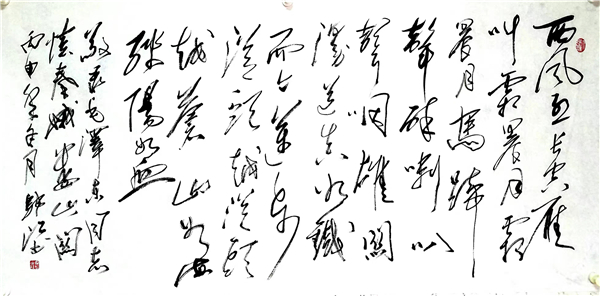 西風烈長空雁
叫霜晨月霜
晨月馬蹄
聲碎喇叭
聲咽雄關
漫道真如鐵
而今邁步
從頭越從頭
越蒼山如海
殘陽如血
敬錄毛澤東同志
憶秦娥婁山關
丙申年月